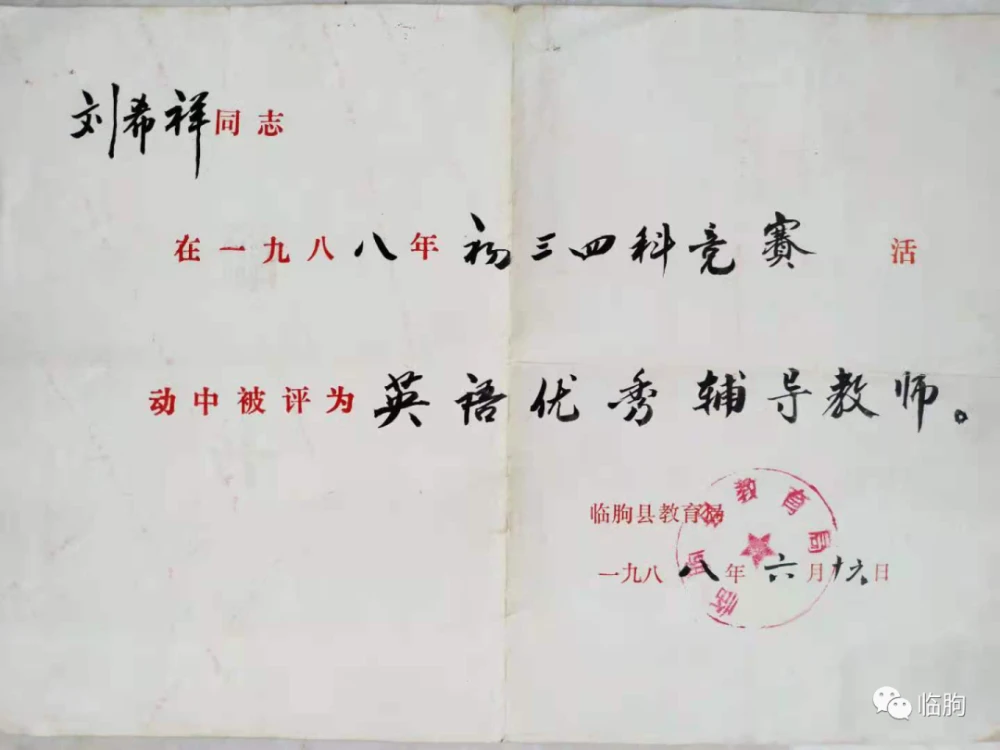 刘希祥同志
在一九八八年初三四科竞赛活
动中被评为英语优秀辅导教师。
临朐县教育局
一九八八年六月十六日
临朐县教育局
临朐